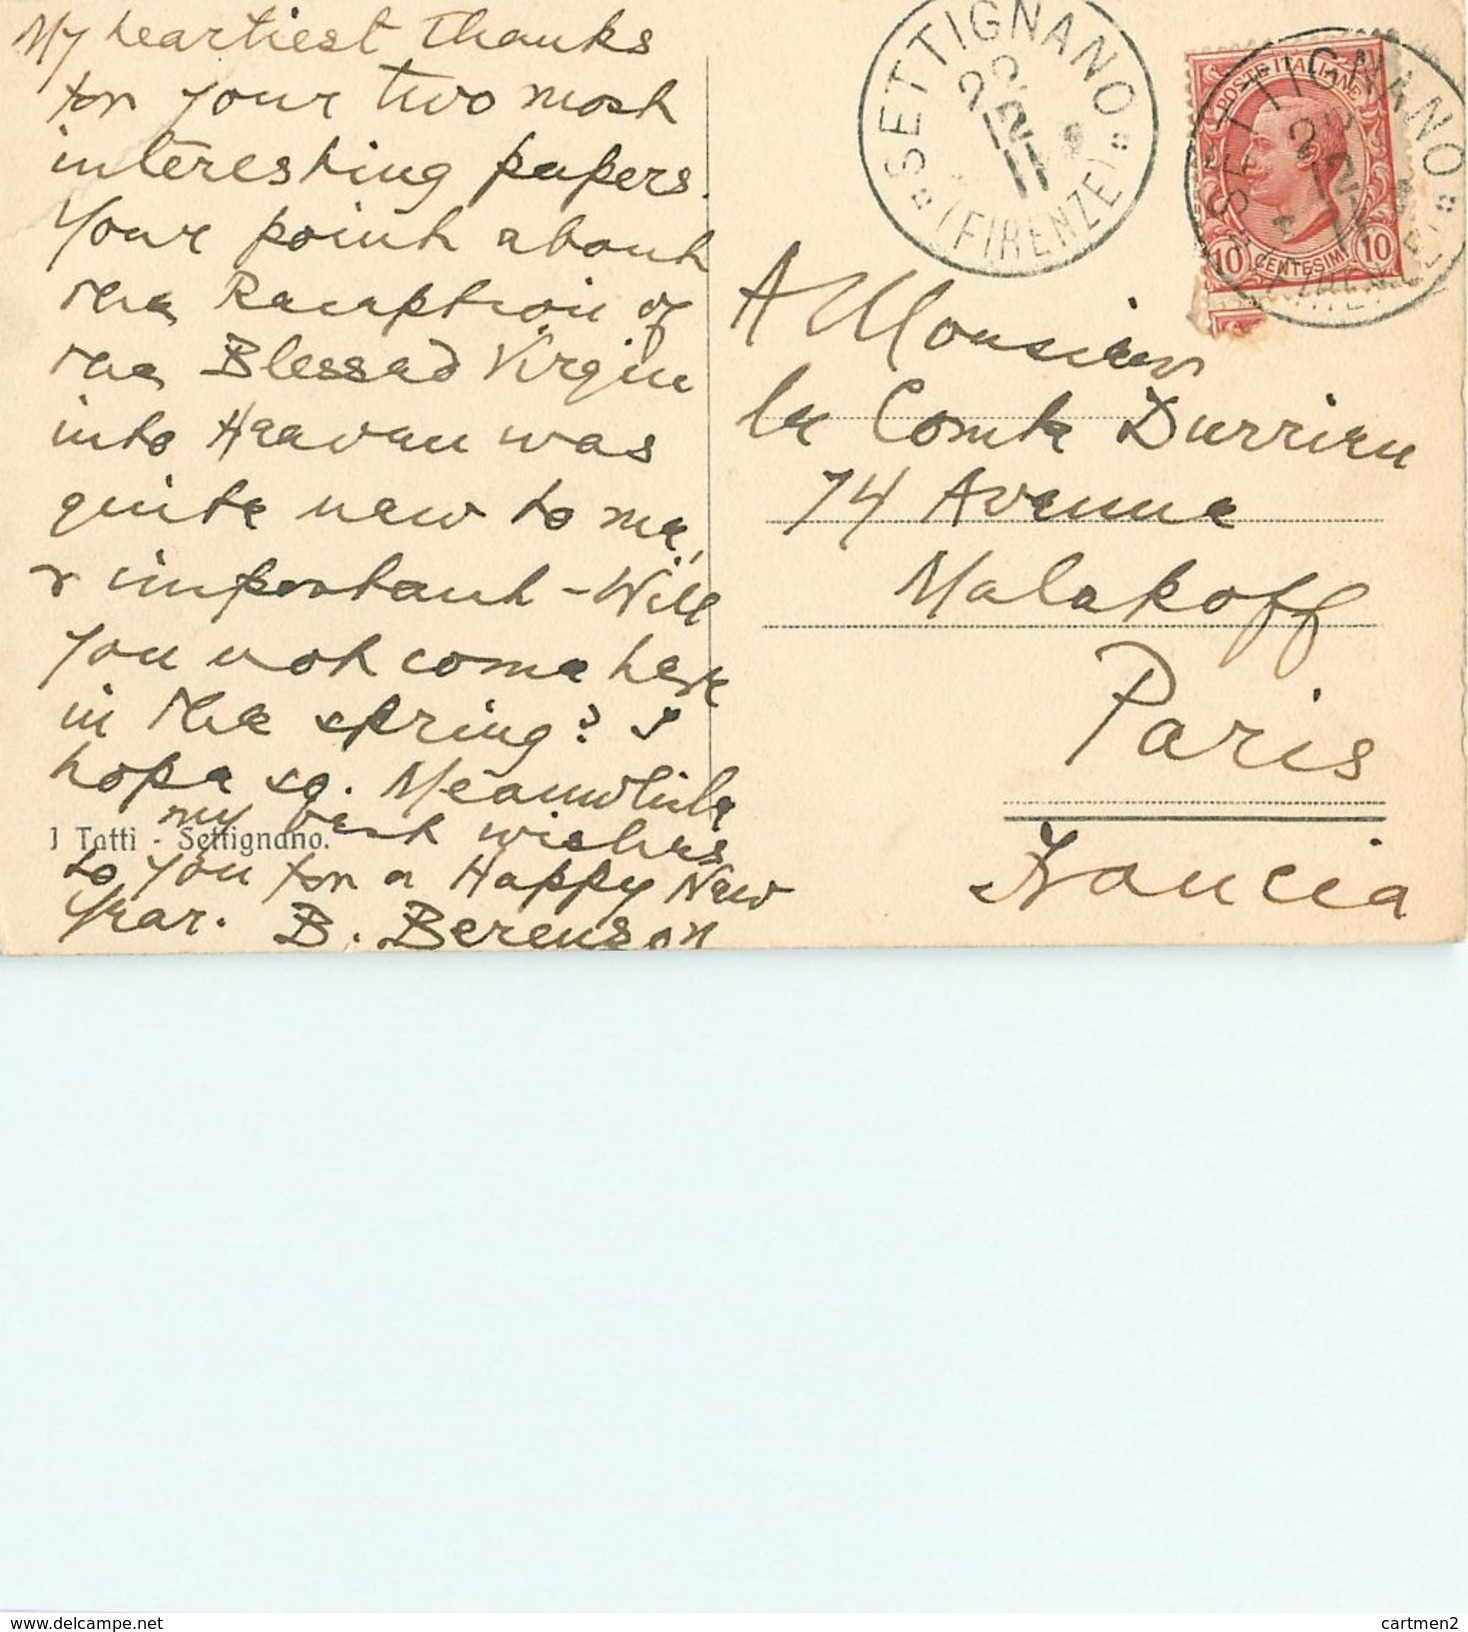 My heartiest thanks
for your two most
interesting papers.
Your point about
the Reception of
the Blessed Virgin
into Heaven was
quite new to me,
& important - Will
you not come here
in the spring? I
hope so. Meanwhile
my best wishes
I Tatti - Settignano.
to you for a Happy New
Year. B. Berenson
SETTIGNANO
(FIRENZE)
22 12 11
POSTE ITALIANE
10 CENTESIMI 10
SETTIGNANO
22 12 11
A Monsieur
le Comte Durrieu
74 Avenue
Malakoff
Paris
Francia
www.delcampe.net
cartmen2